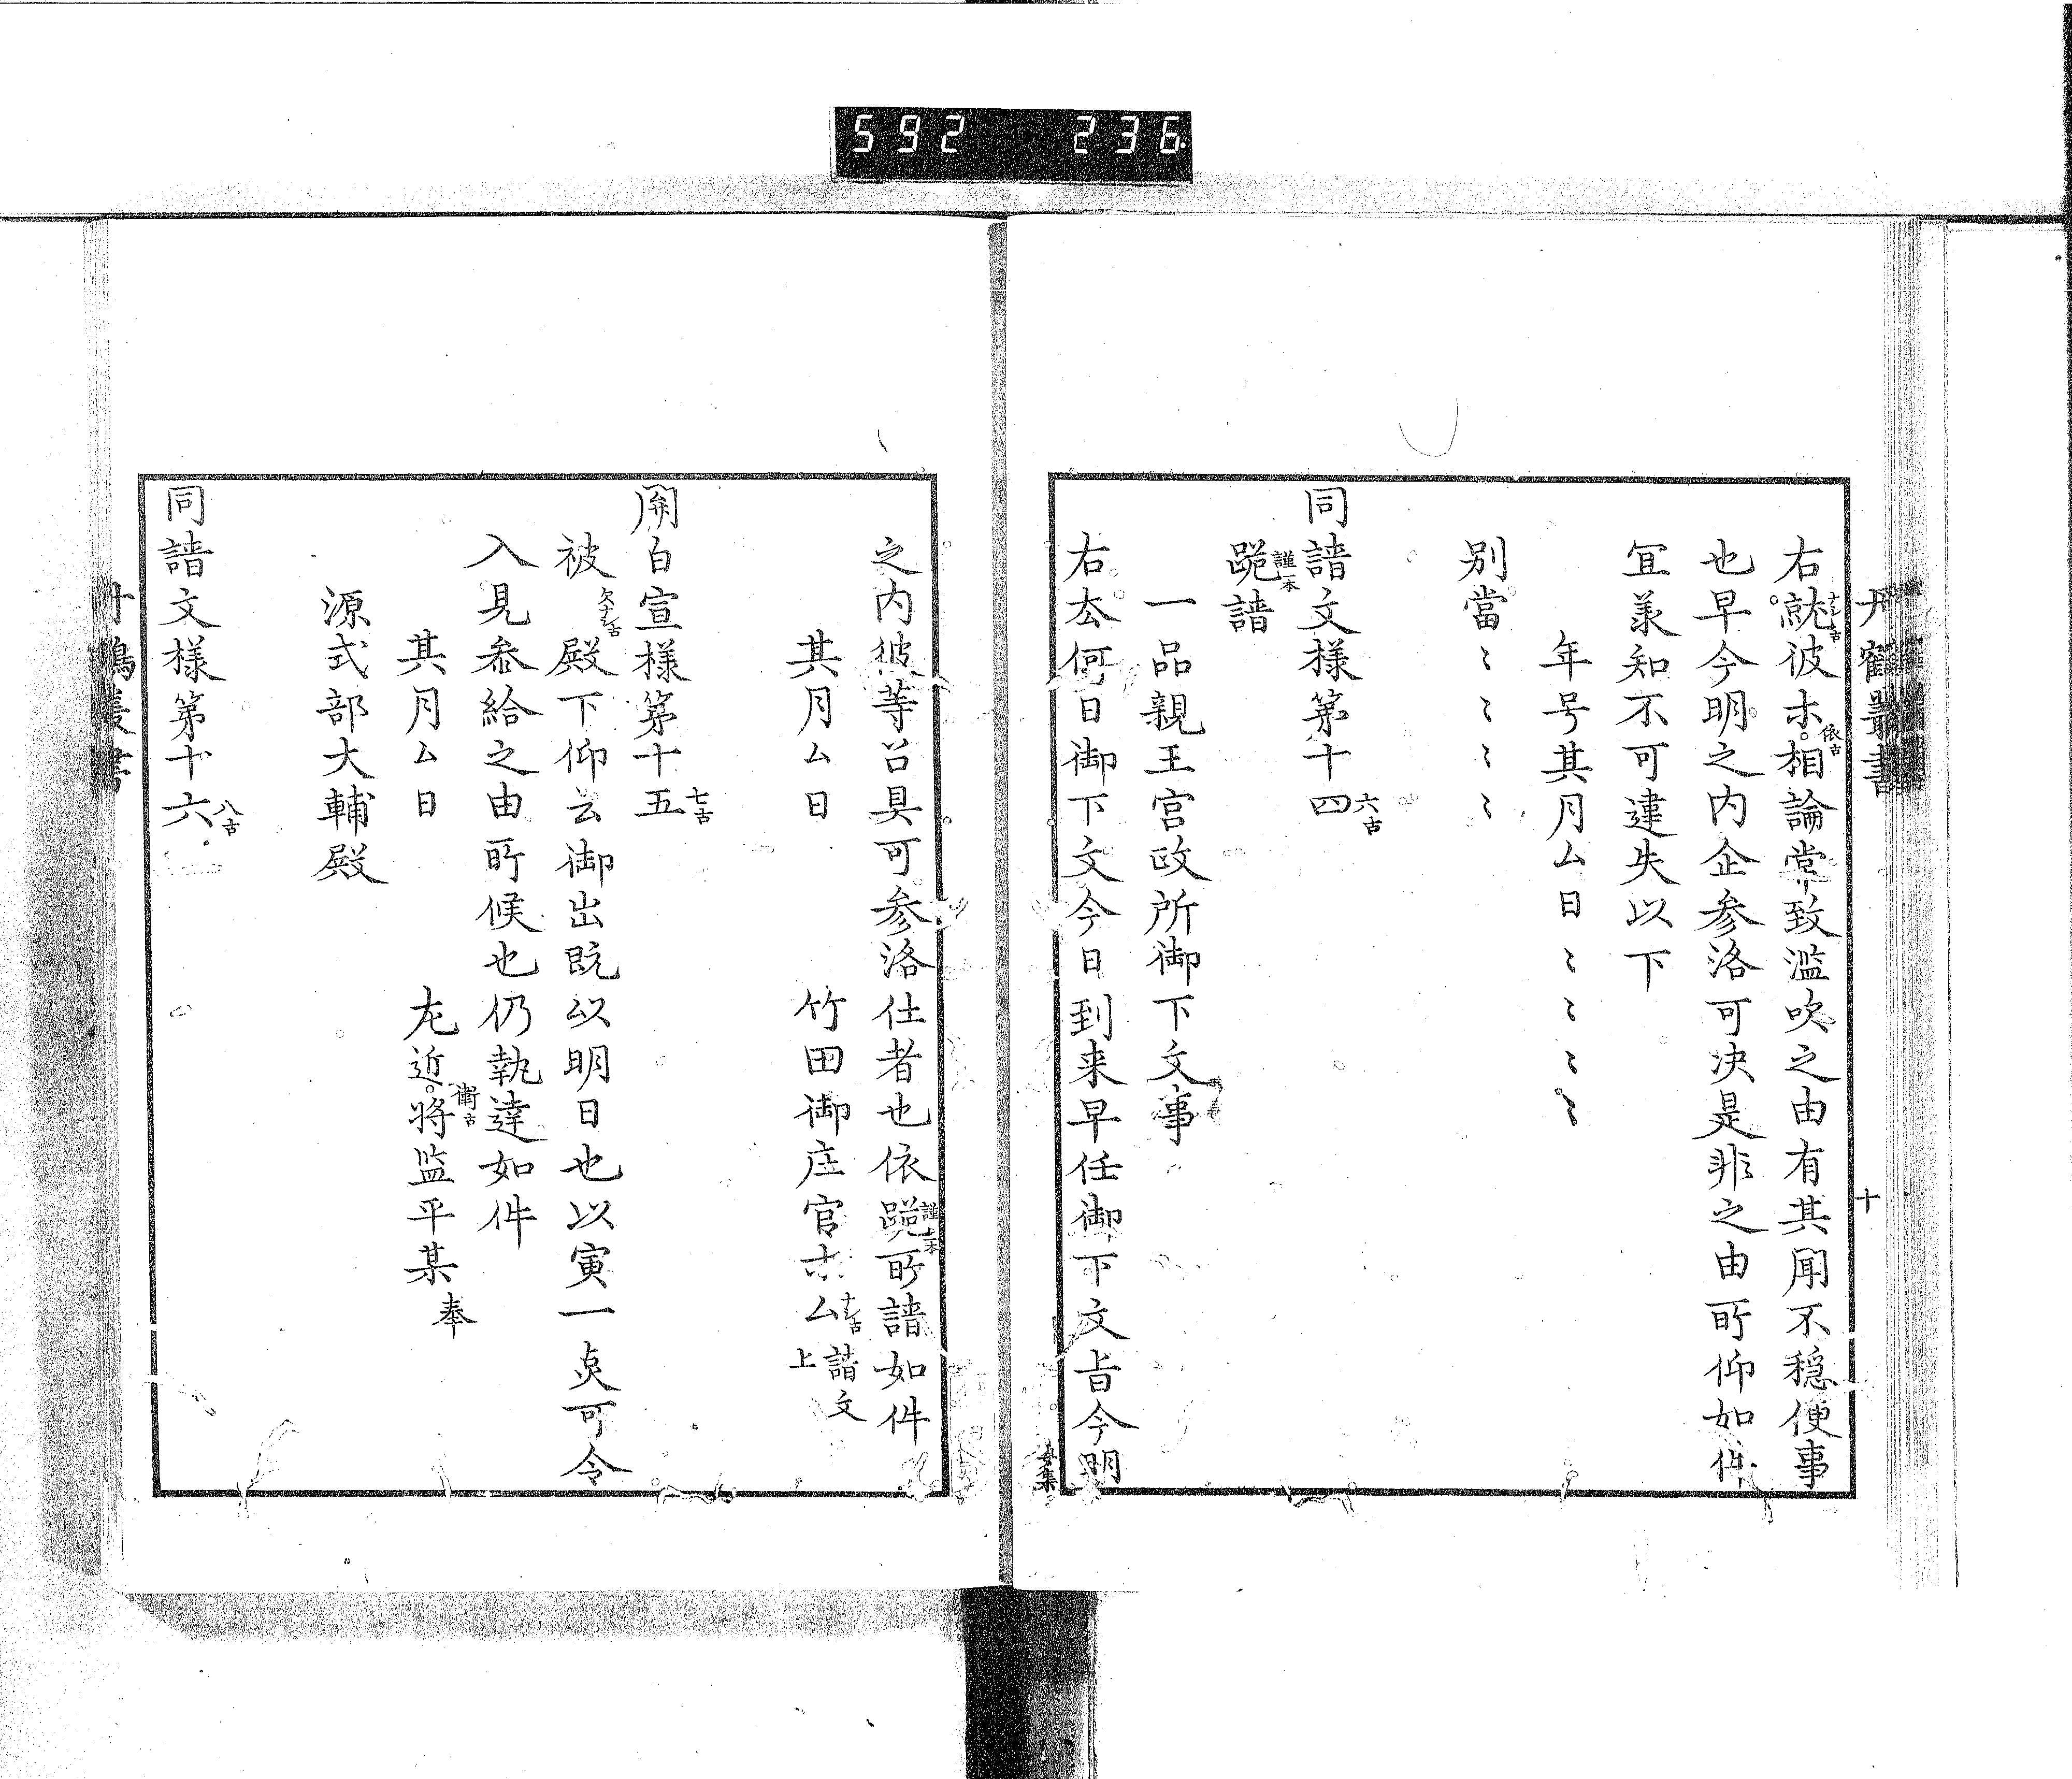 592 236
丹鶴叢書
十
右就彼木相論常致濫吹之由有其聞不穏便事
ナシ古
依古
也早今明之内企参洛可決是非之由所仰如件
宜羕知不可違失以下
年号其月ム日ミミミミ
別當ミミミミ
同請文様第十四
六古
跪請
謹一本
一品親王宮政所御下文事
右厺何日御下文今日到来早任御下文旨今明
集
之内彼等召具可参洛仕者也依跪所請如件
謹一本
其月ム日 竹田御庄官木ム請文上
ナシ古
関白宣様第十五
七古
被 殿下仰云御出既以明日也以寅一点可令
欠ナシ古
入見参給之由所候也仍執達如件
其月ム日 左近将監平某奉
衛古
源式部大輔殿
同請文様第十六
八古
丹鶴叢書